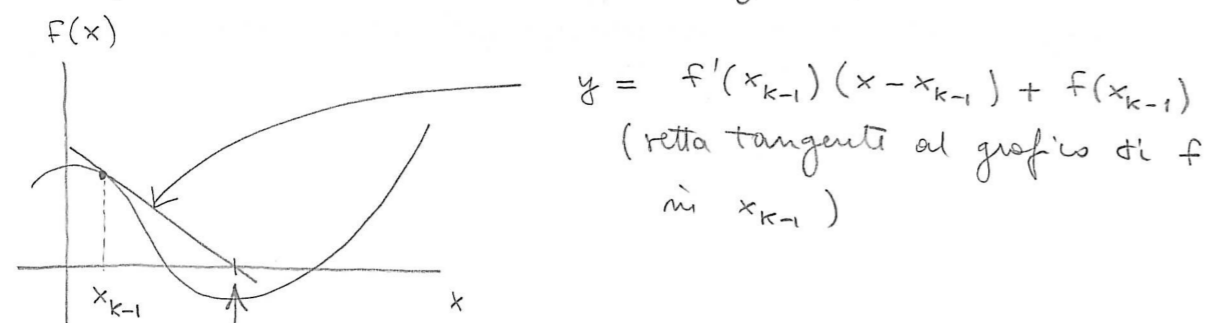 F(x)
y = f'(x_{k-1}) (x - x_{k-1}) + f(x_{k-1})
(retta tangente al grafico di f
in x_{k-1})
x_{k-1}
x